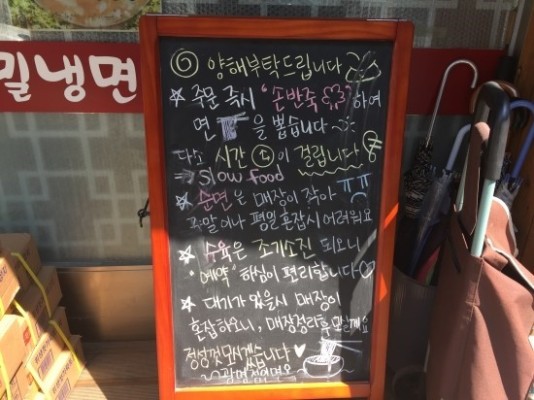 밀냉면
양해부탁드립니다
☆ 주문 즉시 "손반죽"하여
면을 뽑습니다
다소 시간이 걸립니다
⇒ Slow food
☆ 순면은 매장이 작아 ㅠㅠ
주말이나 평일 혼잡시 어려워요
☆ 수육은 조기소진 되오니
"예약" 하심이 편리합니다
☆ 대기가 있을시 매장이
혼잡하오니, 매장정리 후
정성껏 모시겠습니다 ♥